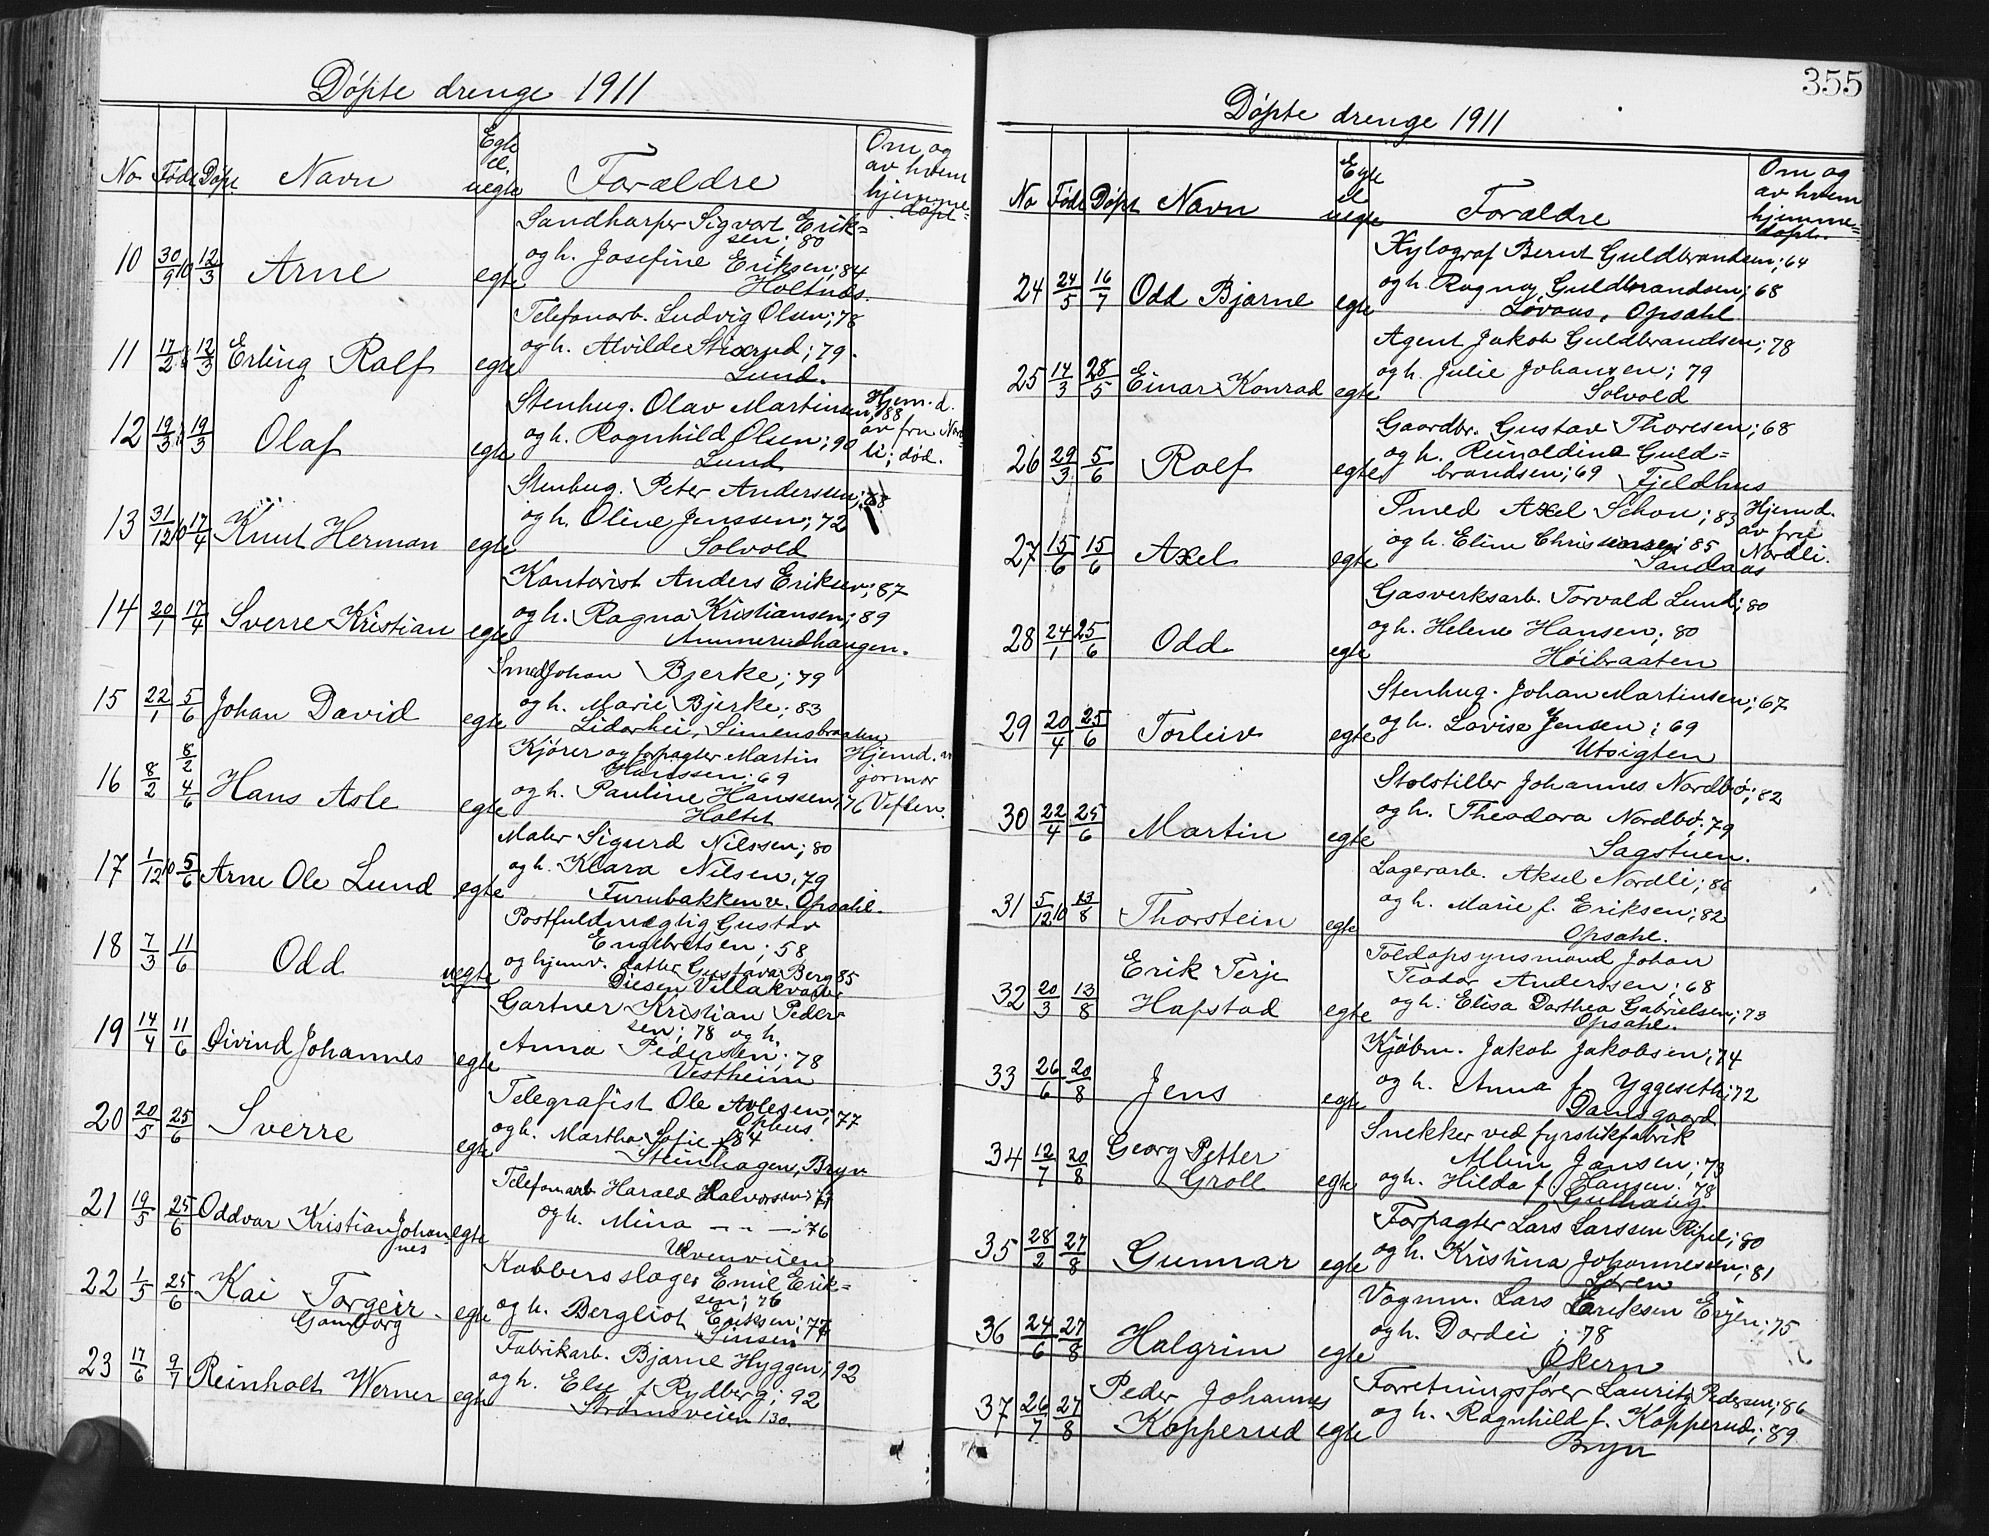 Døpte drenge 1911
No Født Døpt Navn Egte el. uegte Forældre Om og av hvem hjemme=døpt
10 30/9 10 12/3 Arne egte Sandharper Sigvart Erik=
sen; 80
og h. Josefine Eriksen; 84
Holtnæs.
11 17/2 12/3 Erling Rolf egte Telefonarb. Ludvig Olsen; 78
og h. Alvilde Stixrud; 79.
Lund.
12 19/3 19/3 Olaf egte Stenhug. Olav Martinsen, 88 Hjem. d.
og h. Ragnhild Olsen; 90 av fru Nord
Lund li; død.
13 31/12 10 17/4 Knut Herman egte Stenhug. Peter Andersen; 68
og h. Oline Jenssen; 72
Solvold
14 20/1 17/4 Sverre Kristian egte Kontorist Anders Eriksen; 87
og h. Ragna Kristiansen; 89
Ammerudhaugen.
15 22/1 5/6 Johan David egte Smed Johan Bjerke; 79
og h. Marie Bjerke; 83
Lidarhei, Simensbraaten
16 8/2 8/2 4/6 Hans Asle egte Kjører og forpagter Martin Hjemd. av
Hanssen; 69 jormor
og h. Pauline Hanssen, 76 Veflen.
Holtet
17 1/12 10 5/6 Arne Ole Lund egte Maler Sigurd Nilssen; 80
og h. Klara Nilsen, 79
Furubakken v. Opsahl.
18 7/3 11/6 Odd uegte Postfuldmægtig Gustav
Engebretsen; 58
og hjemv. datter Gustava Berg 85
Oiesen Villakvarter
19 14/4 11/6 Øivind Johannes egte Gartner Kristian Peder-
sen; 78 og h.
Anna Pedersen; 78
Vestheim
20 20/5 25/6 Sverre egte Telegrafist Ole Avlesen; 77
Ophus.
og h. Martha Sofie f. 84
Steinhagen, Bryn
21 19/5 25/6 Oddvar Kristian Johan
nes egte Telefonarb Harald Halvorsen; 77
og h. Mina — „ — ; 76
Ulvenveien
22 1/5 25/6 Kai Torgeir
Gamborg egte Kobberslager Emil Erik=
sen; 76
og h. Bergliot Eriksen; 77
Sinsen
23 17/6 9/7 Reinholt Werner egte Fabrikarb. Bjarne Hyggen; 92
og h. Else f. Rydberg; 92
Strømsveien 130.
355
Døpte drenge 1911
No Født Døpt Navn Egte el uegte Forældre Om og av hvem hjemme=døpt.
24 24/5 16/7 Odd Bjarne egte Xylograf Bernt Guldbrandsen; 64
og h. Ragna Guldbrandsen; 68
Løvaas, Opsahl
25 14/3 28/5 Einar Konrad egte Agent Jakob Guldbrandsen; 78
og h. Julie Johansen; 79
Solvold
26 29/3 5/6 Rolf egte Gaardbr. Gustav Thoresen; 68
og h. Reinoldine Guld=
brandsen; 69 Fjeldhus
27 15/6 15/6 Axel egte Smed Axel Schou; 83 Hjemd.
og h. Eline Christiansen; 85 av fru
Sandaas Nordli.
28 24/1 25/6 Odd egte Gasverksarb. Torvald Lund; 80
og h. Helene Hansen; 80
Høibraaten
29 20/4 25/6 Torleiv egte Stenhug. Johan Martinsen; 67
og h. Lovise Jensen; 69
Utsigten
30 22/4 25/6 Martin egte Stolstiller Johannes Nordbø; 82
og h. Theodora Nordbø; 79
Sagstuen.
31 5/12 10 13/8 Thorstein egte Lagerarb. Aksel Nordli; 86
og h. Marie f. Eriksen; 82
Opsahl.
32 20/3 13/8 Erik Terje
Hafstad egte Toldopsynsmand Johan
Teodor Anderssen; 68
og h. Elisa Dorthea Gabrielsen; 73
Opsahl.
33 26/6 20/8 Jens egte Kjøbm. Jakob Jakobsen; 74
og h. Anna f. Yggeseth; 72
Damsgaard
34 12/7 20/8 Georg Petter
Groll egte Snekker ved fyrstikfabrik
Albin Jansen; 73
og h. Hilda f. Hansen. 78
Gulhaug
35 28/2 27/8 Gunnar egte Forpagter Lars Larssen Ripel; 80
og h. Kristina Johannesen; 81
Løren
36 24/6 27/8 Halgrim egte Vognm. Lars Eriksen Erjen; 75
og h. Dordei ; 78
Økern
37 26/7 27/8 Peder Johannes
Kopperud egte Forretningsfører Lauritz Pedersen; 86
og h. Ragnhild f. Kopperud; 89
Bryn